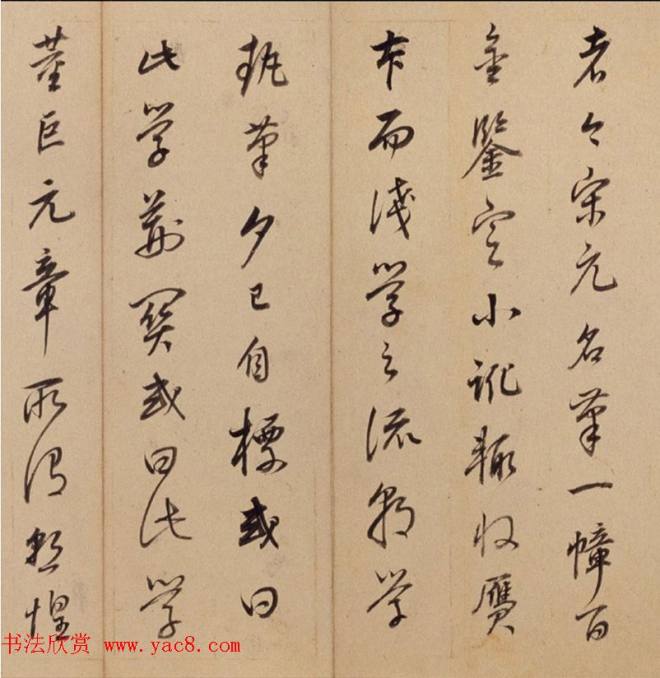 者々宋元名筆一幛百
金鑒定小訛輒收贋
本而淺學之流朝學
執筆夕已自標或曰
此學荊關或曰此學
董巨元章所得黎惶
书法欣赏 www.yac8.com